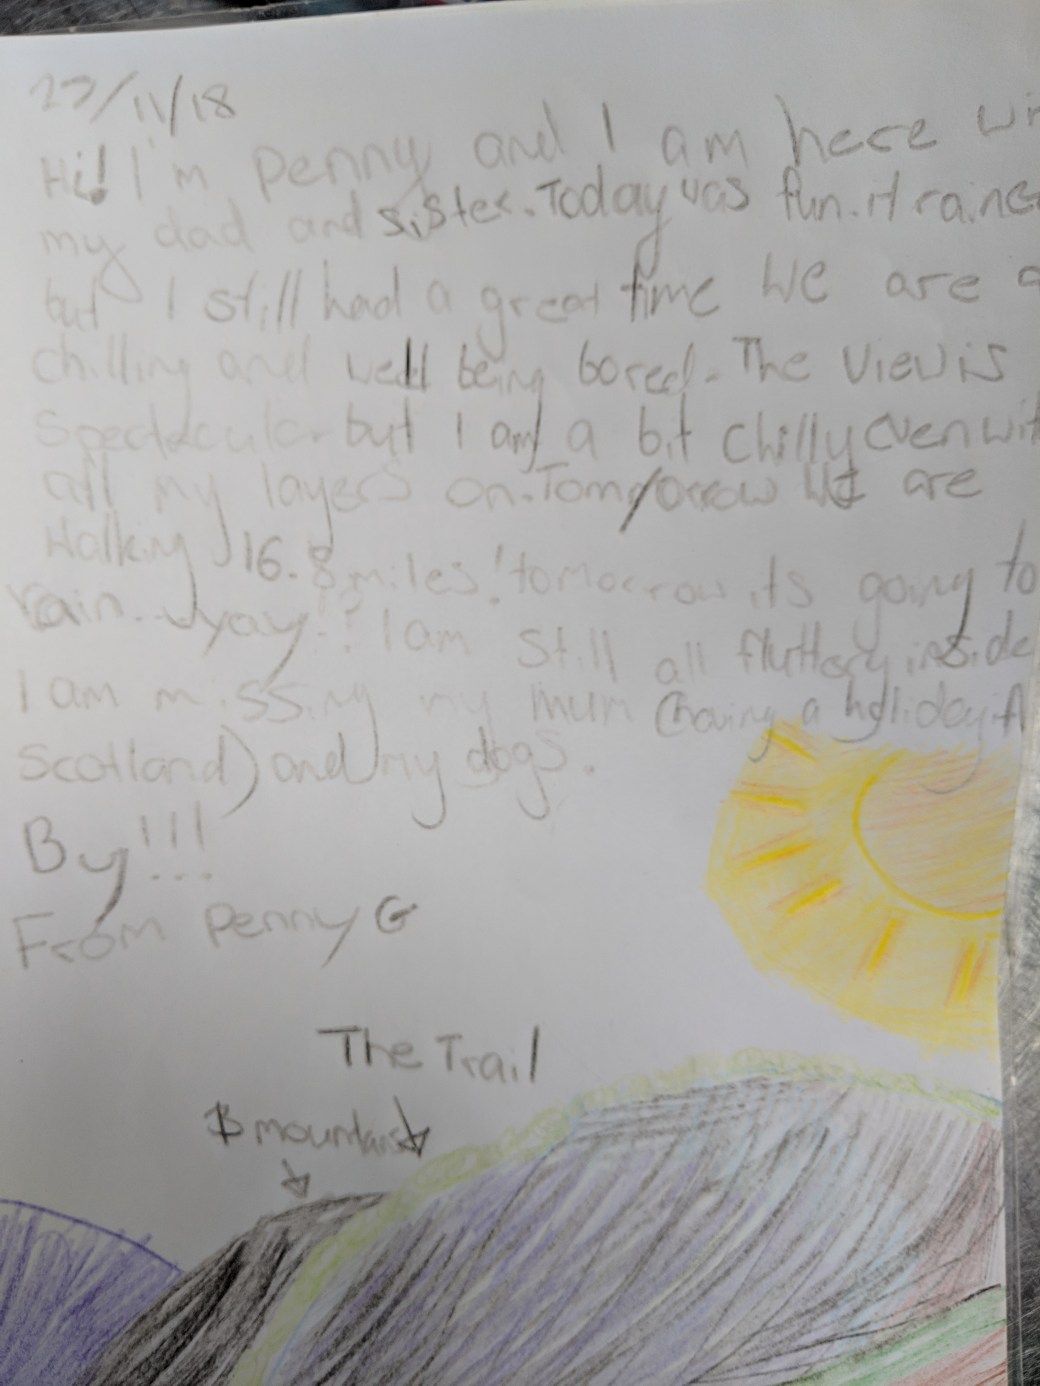 27/11/18
Hi! I'm Penny and I am here wi
my dad and sister. Today was fun. It raine
but I still had a great time We are a
chilling and well being bored. The view is
Spectacular but I am a bit chilly even wit
all my layers on. Tomorrow we are
Walking 16.8 miles! tomorrow its going to
rain. yay!? I am still all fluttery inside
I am missing my mum (having a holiday
Scotland) and my dogs.
By!!!
From Penny G
The Trail
mountains